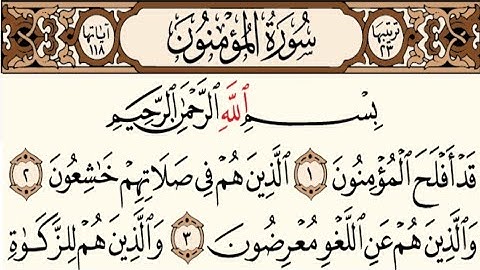 ترتيبها ٢٣ سُورَةُ المُؤْمِنُونَ آياتها ١١٨
بِسْمِ اللَّهِ الرَّحْمَٰنِ الرَّحِيمِ
قَدْ أَفْلَحَ الْمُؤْمِنُونَ ١ الَّذِينَ هُمْ فِي صَلَاتِهِمْ خَاشِعُونَ ٢
وَالَّذِينَ هُمْ عَنِ اللَّغْوِ مُعْرِضُونَ ٣ وَالَّذِينَ هُمْ لِلزَّكَوٰةِ